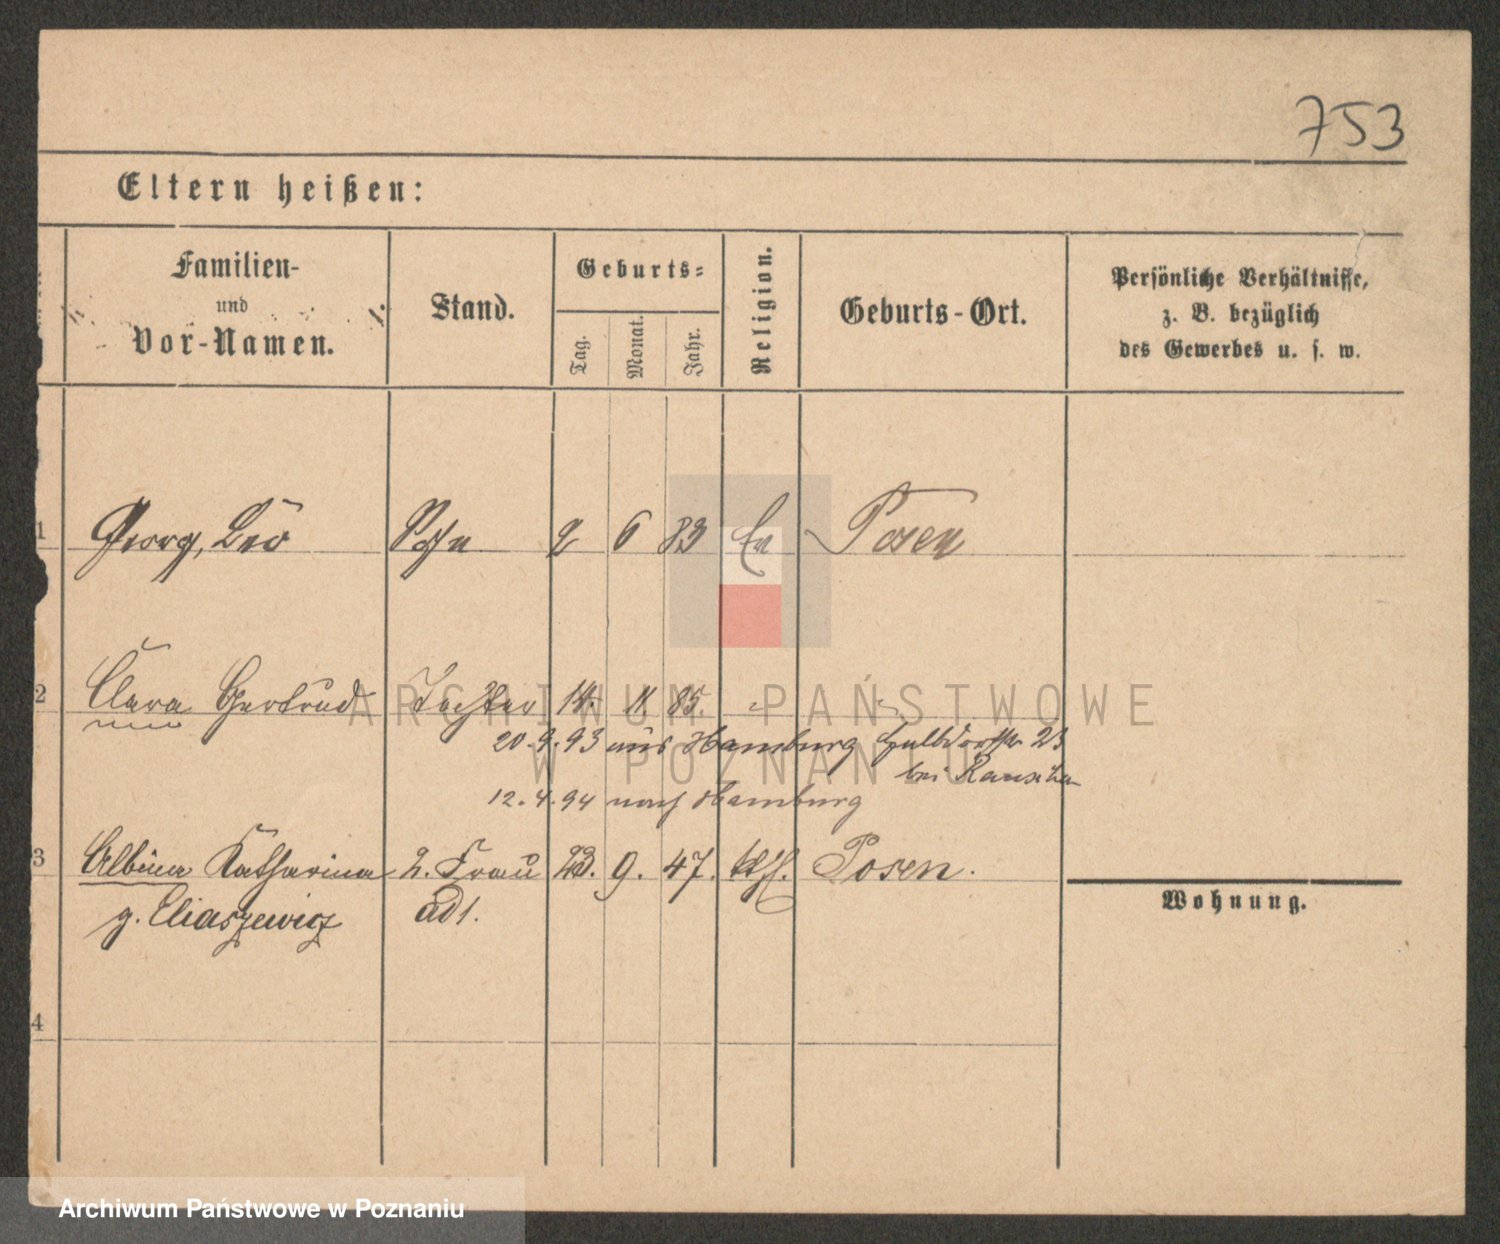 753
Eltern heißen:
Familien-
und
Vor-Namen.
Stand.
Geburts-
Tag.
Monat.
Jahr.
Religion.
Geburts-Ort.
Persönliche Verhältnisse,
z. B. bezüglich
des Gewerbes u. s. w.
1 Georg, Leo Sohn 2 6 83 Ev Posen
2 Clara Gertrud Tochter 14. 11. 85.
20.9.93 aus Hamburg 23
bei
12.4.94 nach Hamburg
3 Albina Katharina 2. Frau 23. 9. 47. kth. Posen.
g. Eliaszewicz ad 1.
Wohnung.
4
ARCHIWUM PAŃSTWOWE
W POZNANIU
Archiwum Państwowe w Poznaniu